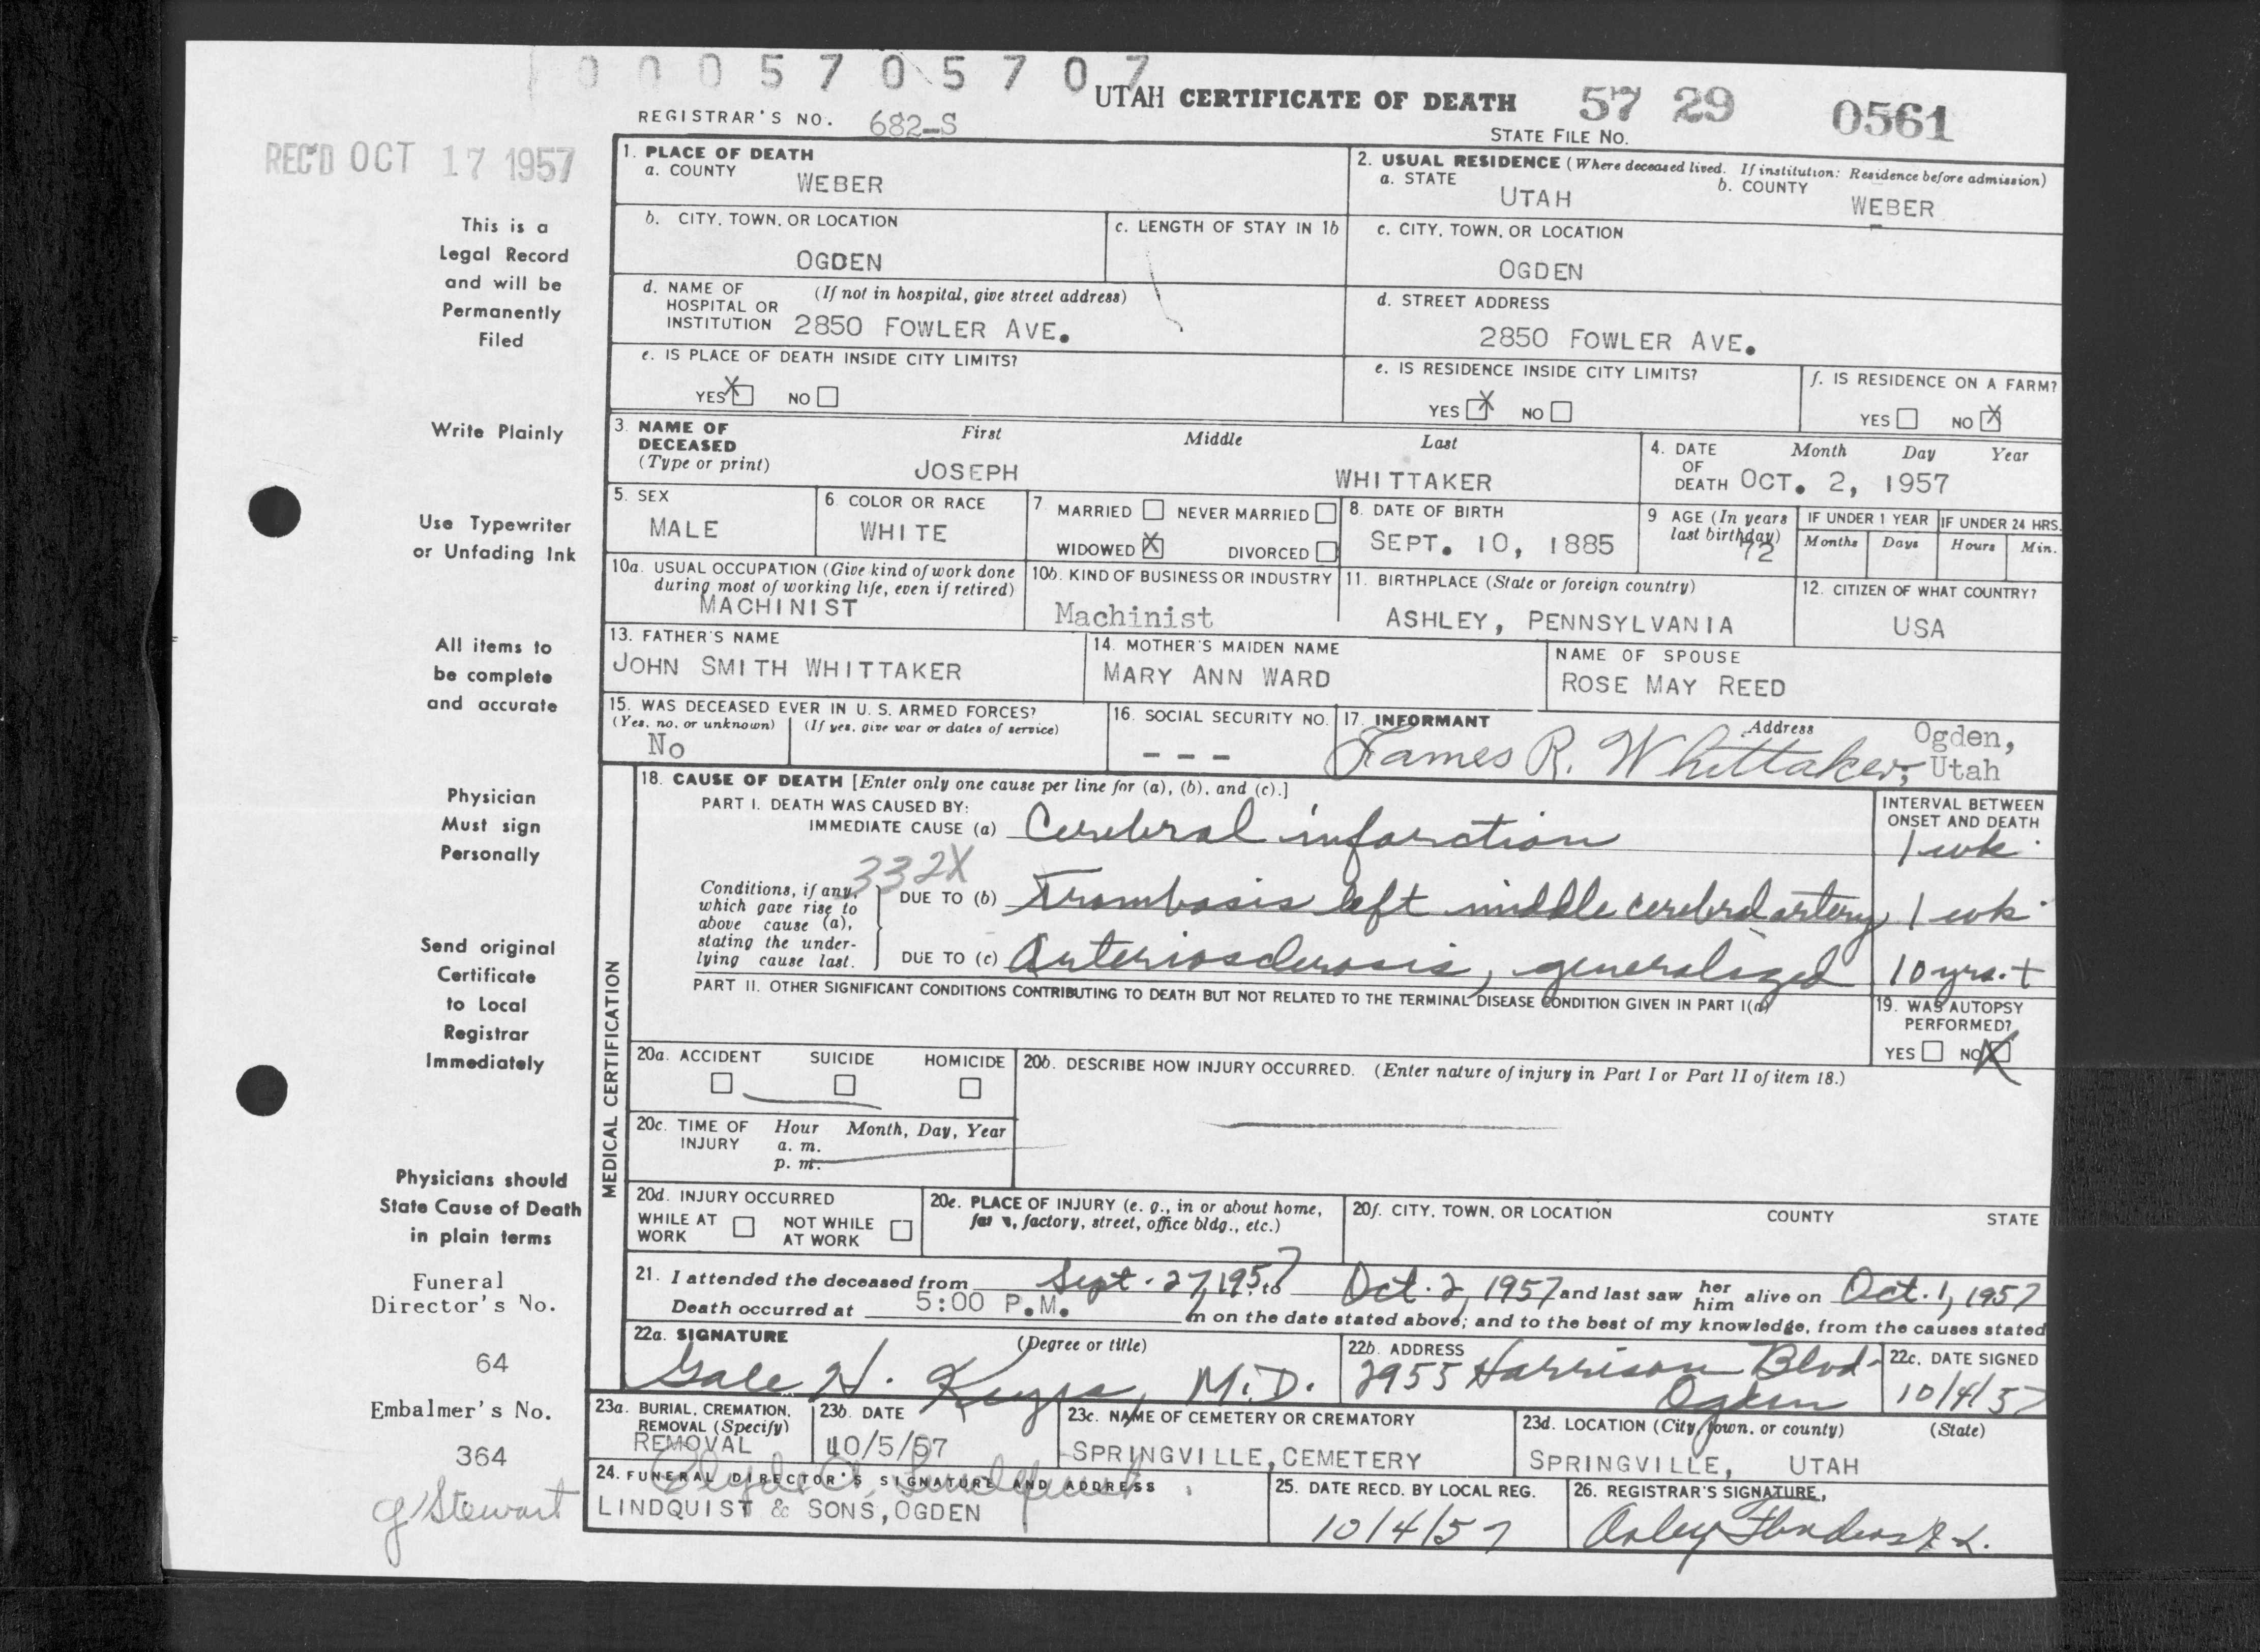 0005705707
UTAH CERTIFICATE OF DEATH 57 29 0561
REGISTRAR'S NO. 682-S
STATE FILE NO.
REC'D OCT 17 1957
This is a
Legal Record
and will be
Permanently
Filed
Write Plainly
Use Typewriter
or Unfading Ink
All items to
be complete
and accurate
Physician
Must sign
Personally
Send original
Certificate
to Local
Registrar
Immediately
Physicians should
State Cause of Death
in plain terms
Funeral
Director's No.
64
Embalmer's No.
364
G Stewart
1. PLACE OF DEATH
a. COUNTY
WEBER
2. USUAL RESIDENCE (Where deceased lived. If institution: Residence before admission)
a. STATE b. COUNTY
UTAH WEBER
b. CITY, TOWN, OR LOCATION
OGDEN
c. LENGTH OF STAY IN 1b
c. CITY, TOWN, OR LOCATION
OGDEN
d. NAME OF HOSPITAL OR INSTITUTION (If not in hospital, give street address)
2850 FOWLER AVE.
d. STREET ADDRESS
2850 FOWLER AVE.
e. IS PLACE OF DEATH INSIDE CITY LIMITS?
YES X NO
e. IS RESIDENCE INSIDE CITY LIMITS?
YES X NO
f. IS RESIDENCE ON A FARM?
YES NO X
3. NAME OF DECEASED (Type or print) First Middle Last
JOSEPH WHITTAKER
4. DATE OF DEATH Month Day Year
OCT. 2, 1957
5. SEX
MALE
6 COLOR OR RACE
WHITE
7 MARRIED NEVER MARRIED
WIDOWED X DIVORCED
8. DATE OF BIRTH
SEPT. 10, 1885
9 AGE (In years last birthday)
72
IF UNDER 1 YEAR IF UNDER 24 HRS.
Months Days Hours Min.
10a. USUAL OCCUPATION (Give kind of work done during most of working life, even if retired)
MACHINIST
10b. KIND OF BUSINESS OR INDUSTRY
Machinist
11. BIRTHPLACE (State or foreign country)
ASHLEY, PENNSYLVANIA
12. CITIZEN OF WHAT COUNTRY?
USA
13. FATHER'S NAME
JOHN SMITH WHITTAKER
14. MOTHER'S MAIDEN NAME
MARY ANN WARD
NAME OF SPOUSE
ROSE MAY REED
15. WAS DECEASED EVER IN U. S. ARMED FORCES?
(Yes, no, or unknown) (If yes, give war or dates of service)
No
16. SOCIAL SECURITY NO.
- - -
17. INFORMANT Address
James R. Whittaker, Ogden, Utah
MEDICAL CERTIFICATION
18. CAUSE OF DEATH [Enter only one cause per line for (a), (b), and (c).]
PART I. DEATH WAS CAUSED BY:
INTERVAL BETWEEN ONSET AND DEATH
IMMEDIATE CAUSE (a) Cerebral infarction 1 wk.
332X
Conditions, if any, which gave rise to above cause (a), stating the underlying cause last.
DUE TO (b) Trombosis left middle cerebral artery 1 wk.
DUE TO (c) Arteriosclerosis, generalized 10 yrs. +
PART II. OTHER SIGNIFICANT CONDITIONS CONTRIBUTING TO DEATH BUT NOT RELATED TO THE TERMINAL DISEASE CONDITION GIVEN IN PART I(a)
19. WAS AUTOPSY PERFORMED?
YES NO X
20a. ACCIDENT SUICIDE HOMICIDE
20b. DESCRIBE HOW INJURY OCCURRED. (Enter nature of injury in Part I or Part II of item 18.)
20c. TIME OF INJURY Hour Month, Day, Year
a. m.
p. m.
20d. INJURY OCCURRED
WHILE AT WORK NOT WHILE AT WORK
20e. PLACE OF INJURY (e. g., in or about home, factory, street, office bldg., etc.)
20f. CITY, TOWN, OR LOCATION COUNTY STATE
21. I attended the deceased from Sept. 27, 1957 to Oct. 2, 1957 and last saw her him alive on Oct. 1, 1957
Death occurred at 5:00 P.M. m on the date stated above; and to the best of my knowledge, from the causes stated
22a. SIGNATURE (Degree or title)
Gale H. M.D.
22b. ADDRESS
2955 Harrison Blvd.
Ogden
22c. DATE SIGNED
10/4/57
23a. BURIAL, CREMATION, REMOVAL (Specify)
REMOVAL
23b. DATE
10/5/57
23c. NAME OF CEMETERY OR CREMATORY
SPRINGVILLE, CEMETERY
23d. LOCATION (City, town, or county) (State)
SPRINGVILLE, UTAH
24. FUNERAL DIRECTOR'S SIGNATURE AND ADDRESS
Clyde Lindquist
LINDQUIST & SONS, OGDEN
25. DATE RECD. BY LOCAL REG.
10/4/57
26. REGISTRAR'S SIGNATURE